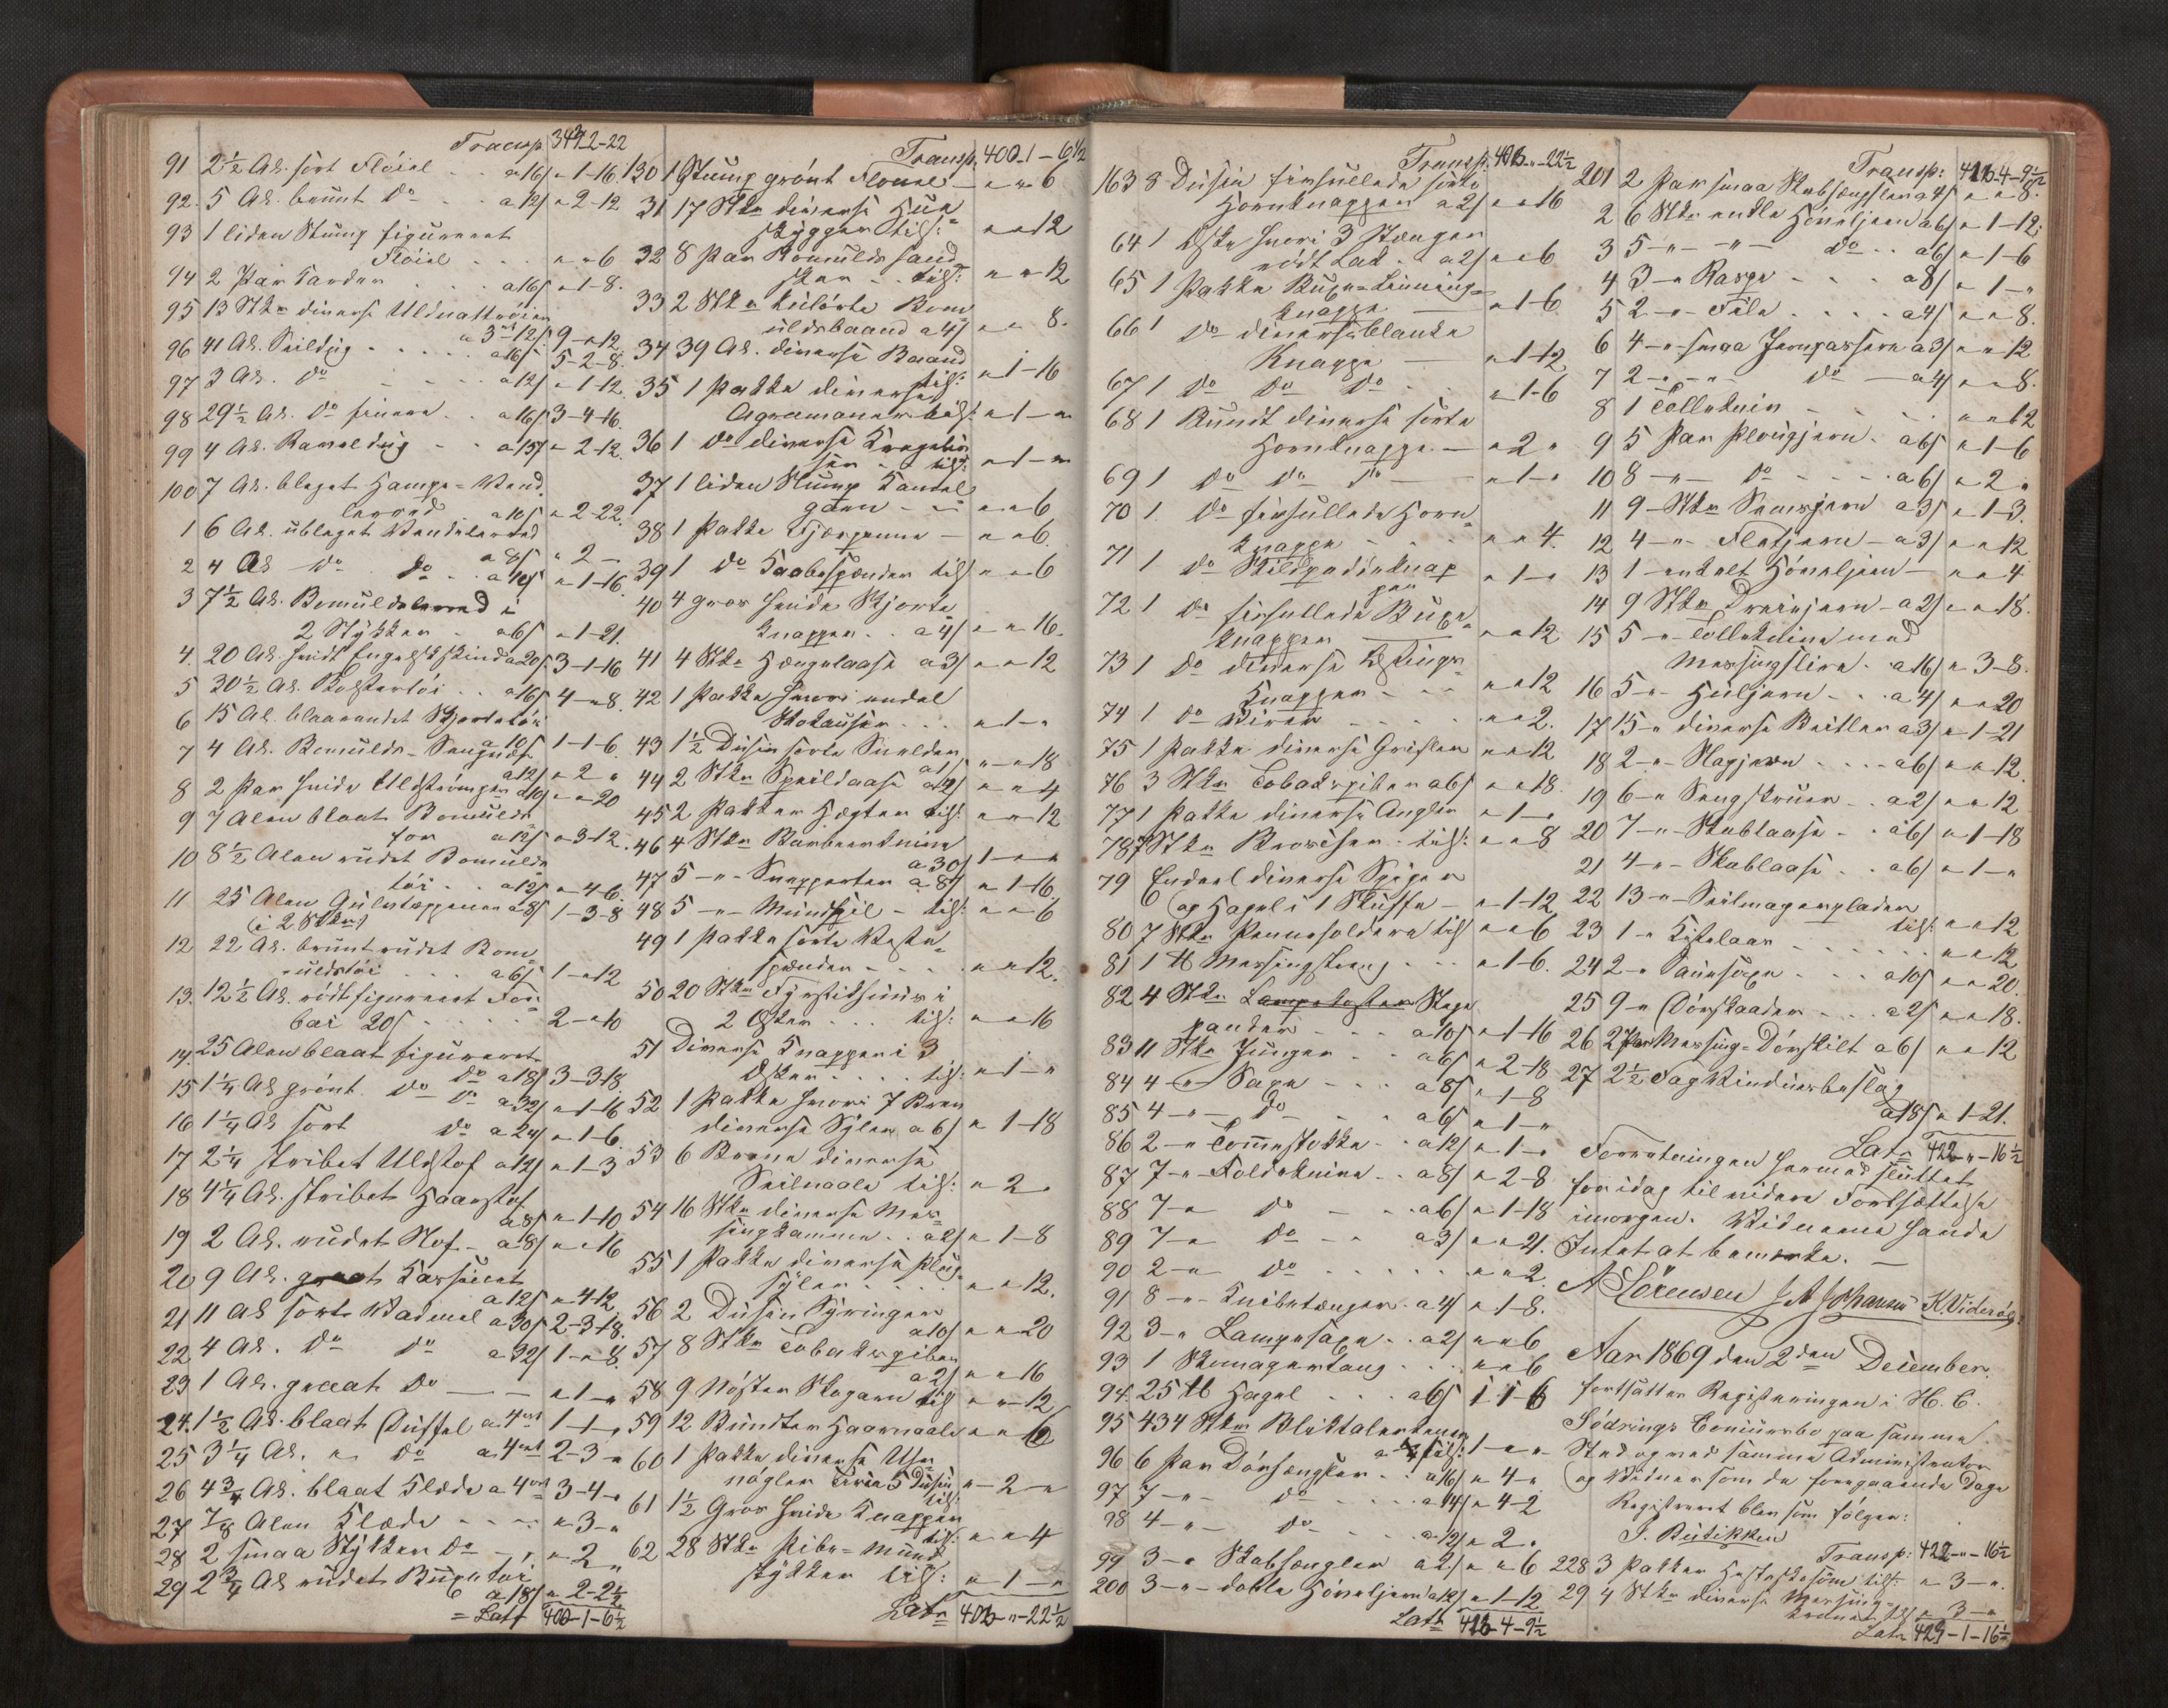 Transp 343-2-22
91 2½ Al. sort Fløiel . . a 16/ " 1-16.
92. 5 Al. brunt Do . . a 12/ " 2-12
93 1 liden Stump figureret
Fløiel . . . " " 6
94 2 Par Karder . . . a 16/ " 1-8.
95 13 Stkr diverse Uldnattrøier
a 3 mk 12/ 9-"12
96 41 Al. Seildug . . . . a 16/ 5-2-8.
97 3 Al. Do . . . . a 12/ " 1-12.
98 29½ Al. Do finere . . a 16/ 3-4-16.
99 4 Al. Ravneldug . . a 15/ " 2-12.
100 7 Al. bleget Hampe-Kand.
lærred . . a 10/ " 2-22.
1 6 Al. ubleget Kandelærred
a 8/ " 2 -
2 4 Al Do Do . . a 10/ " 1-16.
3 7½ Al. Bomuldslærred i
2 Stykker . a 6/ " 1-21.
4. 20 Al. hvidt Engelskskind a 20/ 3-1-16
5 30½ Al. Bolstertøi . . a 16/ 4-"8.
6 15 Al. blaarandet Skjortetøi
a 10/ 1-1-6.
7 4 Al. Bomulds-Sengetøi
a 12/ " 2 "
8 2 Par hvide Uldstrømper a 10/ " " 20
9 7 Alen blaat Bomulds
for a 12/ " 3-12.
10 8½ Alen rudet Bomulds
tøi . . a 12/ " 4-6.
11 25 Alen Gulvtæppener a 8/ 1-3-8
(i 2 Stkr)
12 22 Al. brunt rudet Bom-
uldstøi . . . a 6/ 1-"12
13. 12½ Al. rødt figureret For
bai 20/ . . . . 2-"10
14. 25 Alen blaat figureret
Do a 18/ 3-3-18.
15 1¼ Al grønt Do Do a 32/ " 1-16
16 1¼ Al sort Do a 24/ " 1-6.
17 2¼ stribet Uldstof a 12/ " 1-3
18 4¼ Al. stribet Haarstof
a 8/ " 1-10
19 2 Al. rudet Stof - a 8/ " " 16
20 9 Al. graat Kassinet
a 12/ " 4-12.
21 11 Al sort Vadmel a 30/ 2-3-18.
22 4 Al. Do Do a 32/ 1-"8.
23 1 Al. graat Do — — " 1-"
24. 1½ Al. blaat Duffel a 4 mk 1-1-"
25 3¼ Al. " Do a 4 mk 2-3-"
26 4¾ Al. blaat Klæde a 4 ort 3-4-"
27 7/8 Alen Klæde - - - " 3-"
28 2 smaa Stykker Do - , " 2 "
29 2¾ Al rudet Buxetøi
a 18/ " 2-2½
= Latr 400-1-6½
Transp. 400-1-6½
130 1 Stump grønt Flonel — " " 6
31 17 Stkr diverse Hue
skygger tils: " " 12
32 8 Par Bomulds Hand
sker . . tils: " " 12
33 2 Stkr kulørte Bom
uldsbaand a 4/ " " 8.
34 39 Al. diverse Baand
tils: " 1-16
35 1 Pakke diverse
Agremaner tils: " 1-"
36 1 Do diverse
tils: " 1-"
37 1 liden Stump Kantel
garn - - " " 6
38 1 Pakke — " " 6.
39 1 Do Kaabespænder tils " " 6
40 4 Gros hvide Skjorte
knapper . . a 4/ " " 16.
41 4 Stkr Hængelaase a 3/ " " 12
42 1 Pakke hvori endel
. . . " 1-"
43 1½ Dusin sorte
a 1/ " " 18
44 2 Stkr a 2/ " " 4
45 2 Pakker Hægter tils: " " 12
46 4 Stkr Barbeerknive
a 30/ 1-"-"
47 5 -"- Snepperter a 8/ " 1-16.
48 5 -"- Mundspil - tils: " " 6
49 1 Pakke sorte Veste-
spænder - - - . " " 12.
50 20 Stkr Fyrstikhuus i
2 Æsker . . . tils: " " 16
51 Diverse Knapper i 3
Æsker . . . . tils: " 1-"
52 1 Pakke hvori 7 Breve
diverse Syler a 6/ " 1-18
53 6 Breve diverse
Seilnaale tils: " 2 .
54 16 Stkr diverse Mes-
singkamme . . a 2/ " 1-8
55 1 Pakke diverse Pløg-
syler . . . . " " 12.
56 2 Dusin Syringer
a 10/ " " 20
57 8 Stkr Tobakspiber
a 2/ " " 16
58 9 Nøster Skogarn tils " " 12
59 12 Bundter Haarnaale " " 12
60 1 Pakke diverse Uhr
nøgler circa 5 Dusin
tils: " 2-"
61 1½ Gros hvide Knapper
tils: " " 4
62 28 Stkr Pibe-Mund
stykker tils: " 1-"
Latr 403-"-22½
Transp. 403-"-22½
163 8 Dusin firhullede sorte
Hornknapper a 2/ " " 16
64 1 Æske hvori 3 Stænger
rødt Lak . . a 2/ " " 6
65 1 Pakke Buxe-Linning-
knappe — " 1-6.
66 1 Do diverse blanke
Knappe — " 1-12
67 1 Do Do Do . . " 1-6
68 1 Bundt diverse sorte
Hornknappe. — " 2 "
69 1 Do Do Do — " 1-"
70 1. Do firhullede Horn-
knappe . . . " " 4.
71 1 Do Skildpaddeknap
per " 1-"
72 1 Do firhullede Buxe-
knapper — " " 12
73 1 Do diverse
Knapper - - - " " 12
74 1 Do . . . . " " 2.
75 1 Pakke diverse Grifler " " 12
76 3 Stkr Tobakspiber a 6/ " " 18.
77 1 Pakke diverse Angler " 1-"
78 7 Stkr Broscher . tils: " " 8
79 Endeel diverse Spiger
og Hagel i 1 Skuffe — " 1-12
80 7 Stkr Penneholdere tils " " 6
81 1 ℔ Messingstreng . . . " 1-6.
82 4 Stkr Stege
pander . . . a 10/ " 1-16
83 11 Stkr Junger . . a 6/ " 2-18
84 4 -"- Saxe - - - a 8/ " 1-8
85 4 -"- Do - - . a 6/ " 1-"
86 2 -" Tommestokke . . a 12/ " 1-"
87 7 -"- Foldeknive . . a 8/ " 2-8
88 7 -" Do - - . a 6/ " 1-18
89 7 -" Do - - a 3/ " " 21.
90 2 -" Do . . . . . " " 2.
91 8 -"- Knibetænger . a 4/ " 1-8.
92 3 -" Lampesaxe . . a 2/ " " 6
93 1 Skomagertang . . . " " 6
94. 25 ℔ Hagel . . . a 6/ 1 1-6
95 434 Stkr Bliktalerkener
tils: 1-"-"
96 6 Par Dørhængsler . . a 16/ " 4-"
97 7 -"- Do . . . . a 14/ " 4-2
98 4 -"- Do . . . . a 12/ " 2 .
99 3 -" Skabhængsler a 2/ " " 6
200 3 -"- doble Høveljern a 12/ " 1-12
Latr 413-4-9½
Transp: 413-4-9½
201 2 Par smaa Skabhængsler a 4/ " " 8.
2 6 Stkr enkle Høveljern a 6/ " 1-12.
3 5 -"- -"- Do . . a 6/ " 1-6
4 3 -" Raspe - - . . a 8/ " 1-"
5 2 -"- File . . . . a 4/ " " 8.
6 4 -"- smaa Jernpassere a 3/ " " 12
7 2 -"- -"- Do — a 4/ " " 8.
8 1 Tolleknin - - . . . " " 12
9 5 Par Plougjern . a 6/ " 1-6
10 8 -"- Do - - - . a 6/ " 2 .
11 9 - Stkr a 3/ " 1-3.
12 4 -"- Fletjern - a 3/ " " 12
13 1 - enkelt Høveljern — " " 4
14 9 Stkr Dreiejern - a 2/ " " 18.
15 5 -"- Tolleknive med
Messingslire . a 16/ " 3-8.
16 5 -"- Huljern - . . a 4/ " " 20
17 15 -" diverse Beitler a 3/ " 1-21
18 2 -"- . . . a 6/ " " 12.
19 6 -" Sengskruer . . a 2/ " " 12
20 7 -"- Skablaase . . a 6/ " 1-18
21 4 -"- Skablaase . . a 6/ " 1-"
22 13 -" Seilmagerplader
tils: " " 12
23 1 -" . . . . . " " 12
24 2 -" Saursaxe . . . a 10/ " " 20.
25 9 -" . . . a 2/ " " 18.
26 2 Par Messing-Dørskilt a 6/ " " 12
27 2½ Fag Vinduesbeslag
a 18/ " 1-21.
Latr 422-"-16½
Forretningen hermed sluttet
for idag til videre Fortsættelse
imorgen. Vidnerne havde
Intet at bemærke. —
A Sørensen J. A. Johansen K. Viderøe
Aar 1869 den 2den December.
fortsattes Registreringen i H. C.
Sødrings Concursbo paa samme
Sted og ved samme Administrator
og Vidner som de foregaaende Dage
Registreret blev som følger:
I. Butikken
Transp: 422-"-16½
228 3 Pakker Hesteskosøm tils: " 3-".
29 4 Stkr diverse Messing-
kraner tils " 3-"
Latr 423-1-16½